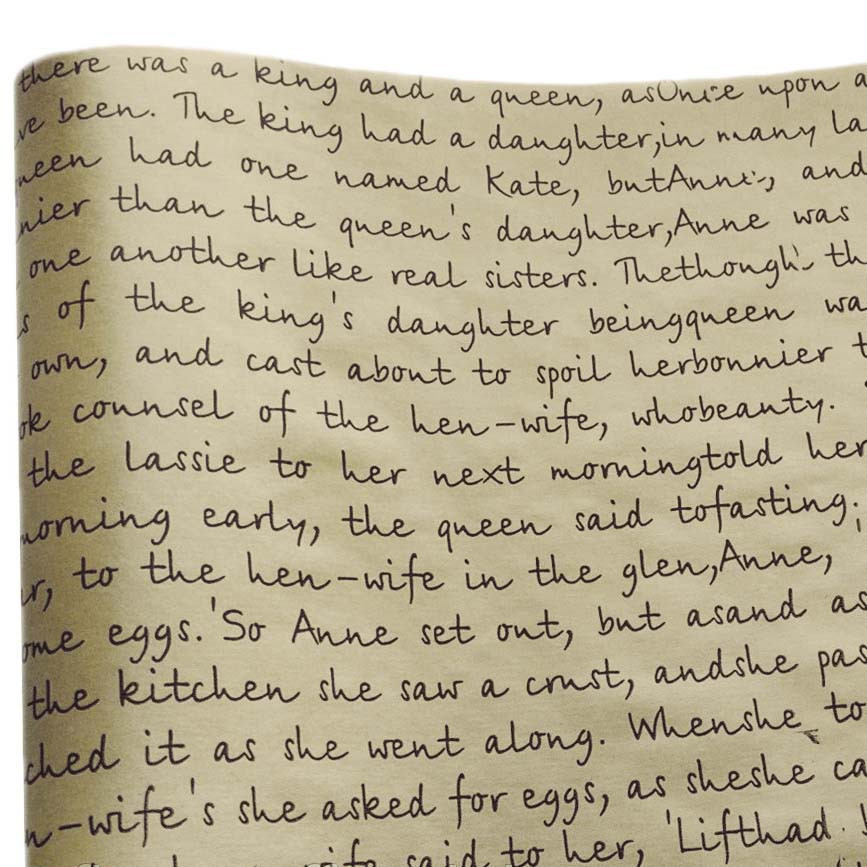 there was a king and a queen, as Once upon a
been. The king had a daughter, in many
had one named Kate, but and
than the queen's daughter, Anne was
one another like real sisters. The though th
s of the king's daughter being queen wa
own, and cast about to spoil her bonnier t
counsel of the hen-wife, who beauty.
the lassie to her next morning told her
morning early, the queen said to fasting.
r, to the hen-wife in the glen, Anne,
ome eggs.' So Anne set out, but as and as
the kitchen she saw a crust, and she pas
ched it as she went along. When she to
n-wife's she asked for eggs, as she she ca
said to her, 'Lift had